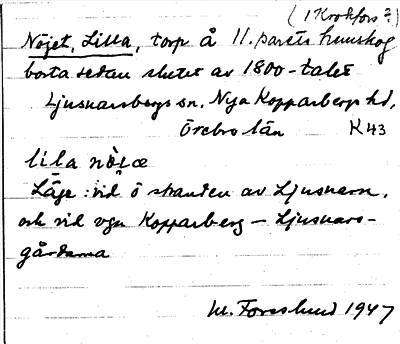 (1 Krokfors?)
Nöjet, Lilla, torp å 11. parets hemskog
borta sedan slutet av 1800-talet
Ljusnarsbergs sn. Nya Kopparbergs hd,
Örebro län K43
lila nòjæ
Läge: vid ö stranden av Ljusnarn,
och vid vgn Kopparberg – Ljusnars-
gårdarna
M. Forsslund 1947